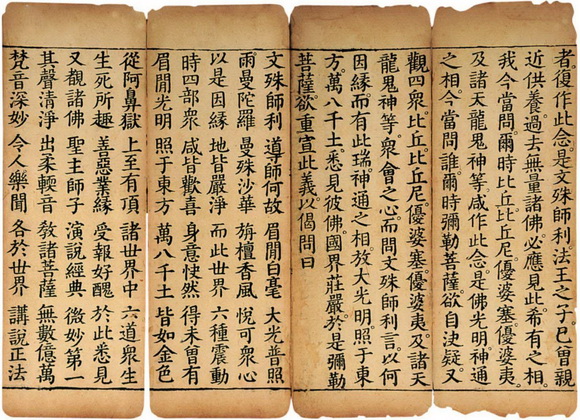 者。復作此念。是文殊師利法王之子。已曾親
近供養過去無量諸佛。必應見此希有之相。
我今當問。爾時比丘比丘尼。優婆塞優婆夷。
及諸天龍鬼神等。咸作此念。是佛光明神通
之相。今當問誰。爾時彌勒菩薩。欲自决疑。又
觀四衆。比丘。比丘尼。優婆塞。優婆夷。及諸天
龍鬼神等。衆會之心。而問文殊師利言。以何
因緣。而有此瑞。神通之相。放大光明。照于東
方。萬八千土。悉見彼佛。國界莊嚴。於是彌勒
菩薩。欲重宣此義。以偈問曰
文殊師利 導師何故 眉閒白毫 大光普照
雨曼陀羅 曼殊沙華 栴檀香風 悅可衆心
以是因緣 地皆嚴淨 而此世界 六種震動
時四部衆 咸皆歡喜 身意快然 得未曾有
眉閒光明 照于東方 萬八千土 皆如金色
從阿鼻獄 上至有頂 諸世界中 六道衆生
生死所趣 善惡業緣 受報好醜 於此悉見
又覩諸佛 聖主師子 演說經典 微妙第一
其聲清淨 出柔輭音 敎諸菩薩 無數億萬
梵音深妙 令人樂聞 各於世界 講說正法